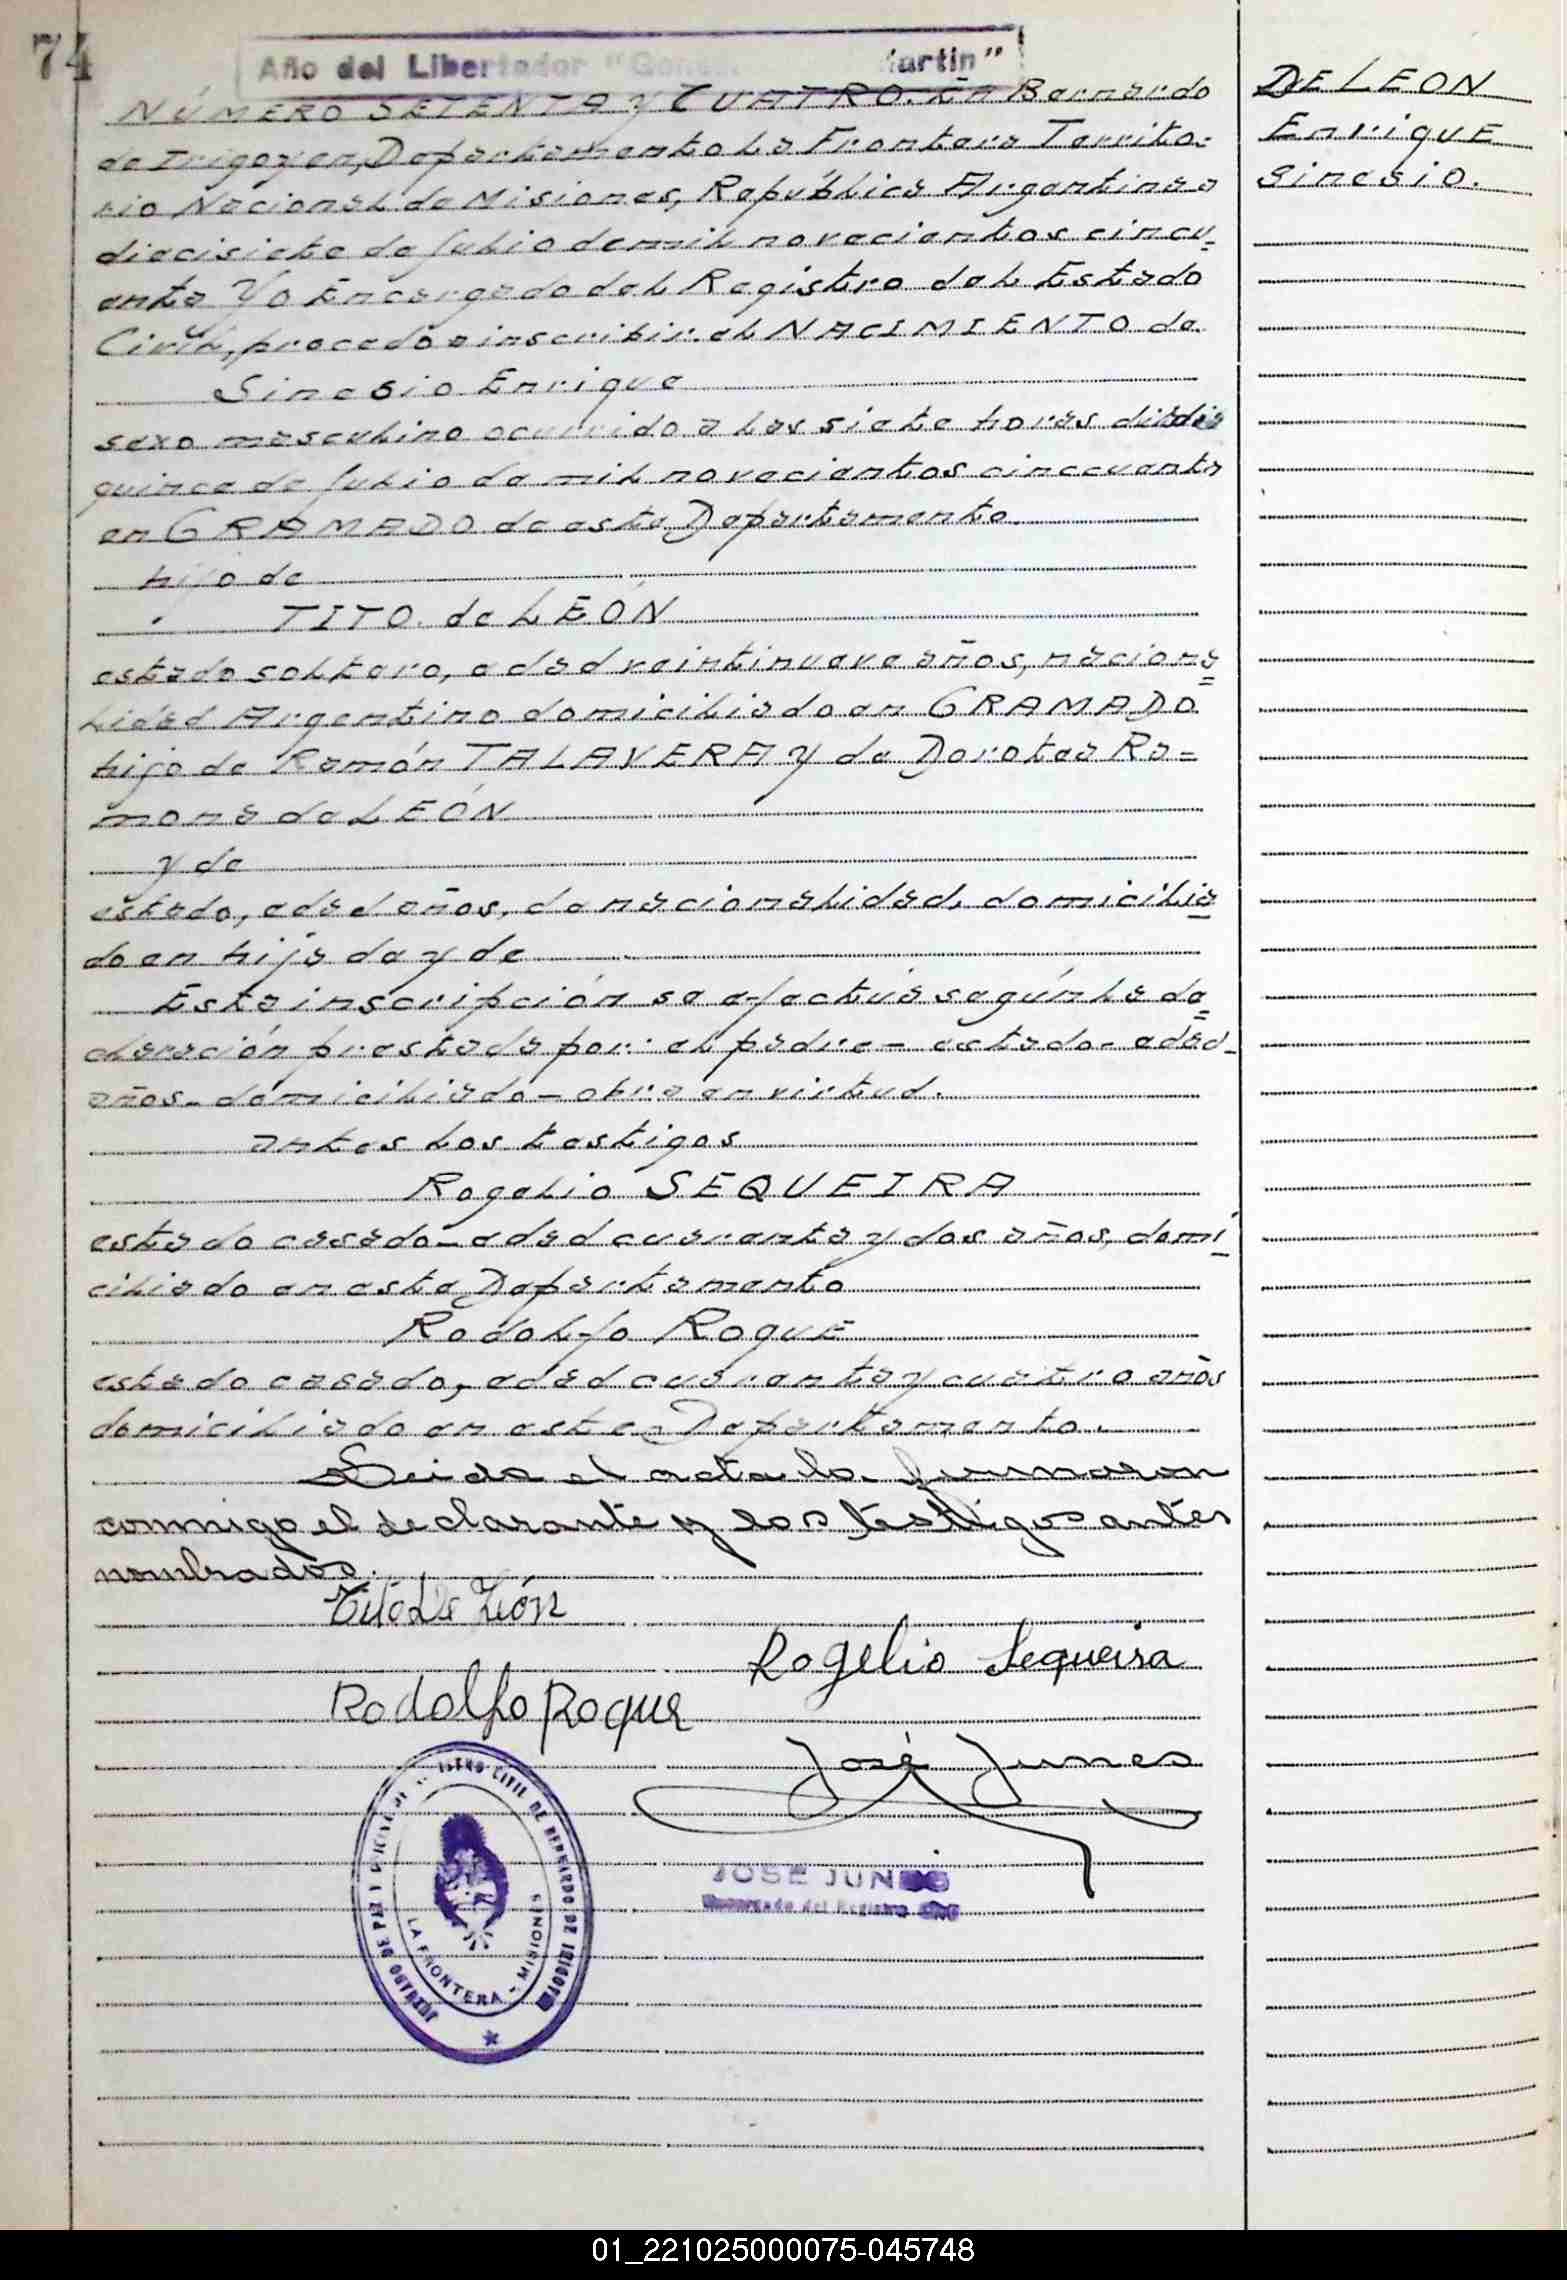 74
Año del Libertador "Gene Martin"
NÚMERO SETENTA Y CUATRO. En Bernardo
de Irigoyen, Departamento La Frontera Territo-
rio Nacional de Misiones, República Argentina a
diecisiete de Julio de mil novecientos cincu=
enta Yo Encargado del Registro del Estado
Civil, procedo a inscribir el NACIMIENTO de
Sinesio Enrique
sexo masculino ocurrido a las siete horas del dia
quince de Julio de mil novecientos cinccuenta
en GRAMADO de este Departamento.
hijo de
TITO. de LEÓN
estado soltero, edad veintinueve años, naciona=
lidad Argentino domiciliado en GRAMADO
hijo de Ramón TALAVERA y de Dorotea Ra=
mona de LEÓN
y de
estado, edad años, de nacionalidad, domicilia
do en hija de y de
Esta inscripción se efectúa según la de=
claración prestada por: el padre - estado - edad -
años - domiciliado - obra en virtud.
antes los testigos
Rogelio SEQUEIRA
estado casado - edad cuarenta y dos años, domi
ciliado en este Departamento
Rodolfo Roque
estado casado, edad cuarenta y cuatro años
domiciliado en este Departamento.
Leida el acta la firmaron
conmigo el declarante y los testigos antes
nombrados.
Tito De León
Rogelio Sequeira
Rodolfo Roque
José Junes
JOSE JUNES
Encargado del Registro Civil
JUZGADO DE PAZ Y REGISTRO CIVIL DE BERNARDO DE IRIGOYEN
LA FRONTERA - MISIONES
DE LEON
Enrique
Sinesio.
01_221025000075-045748